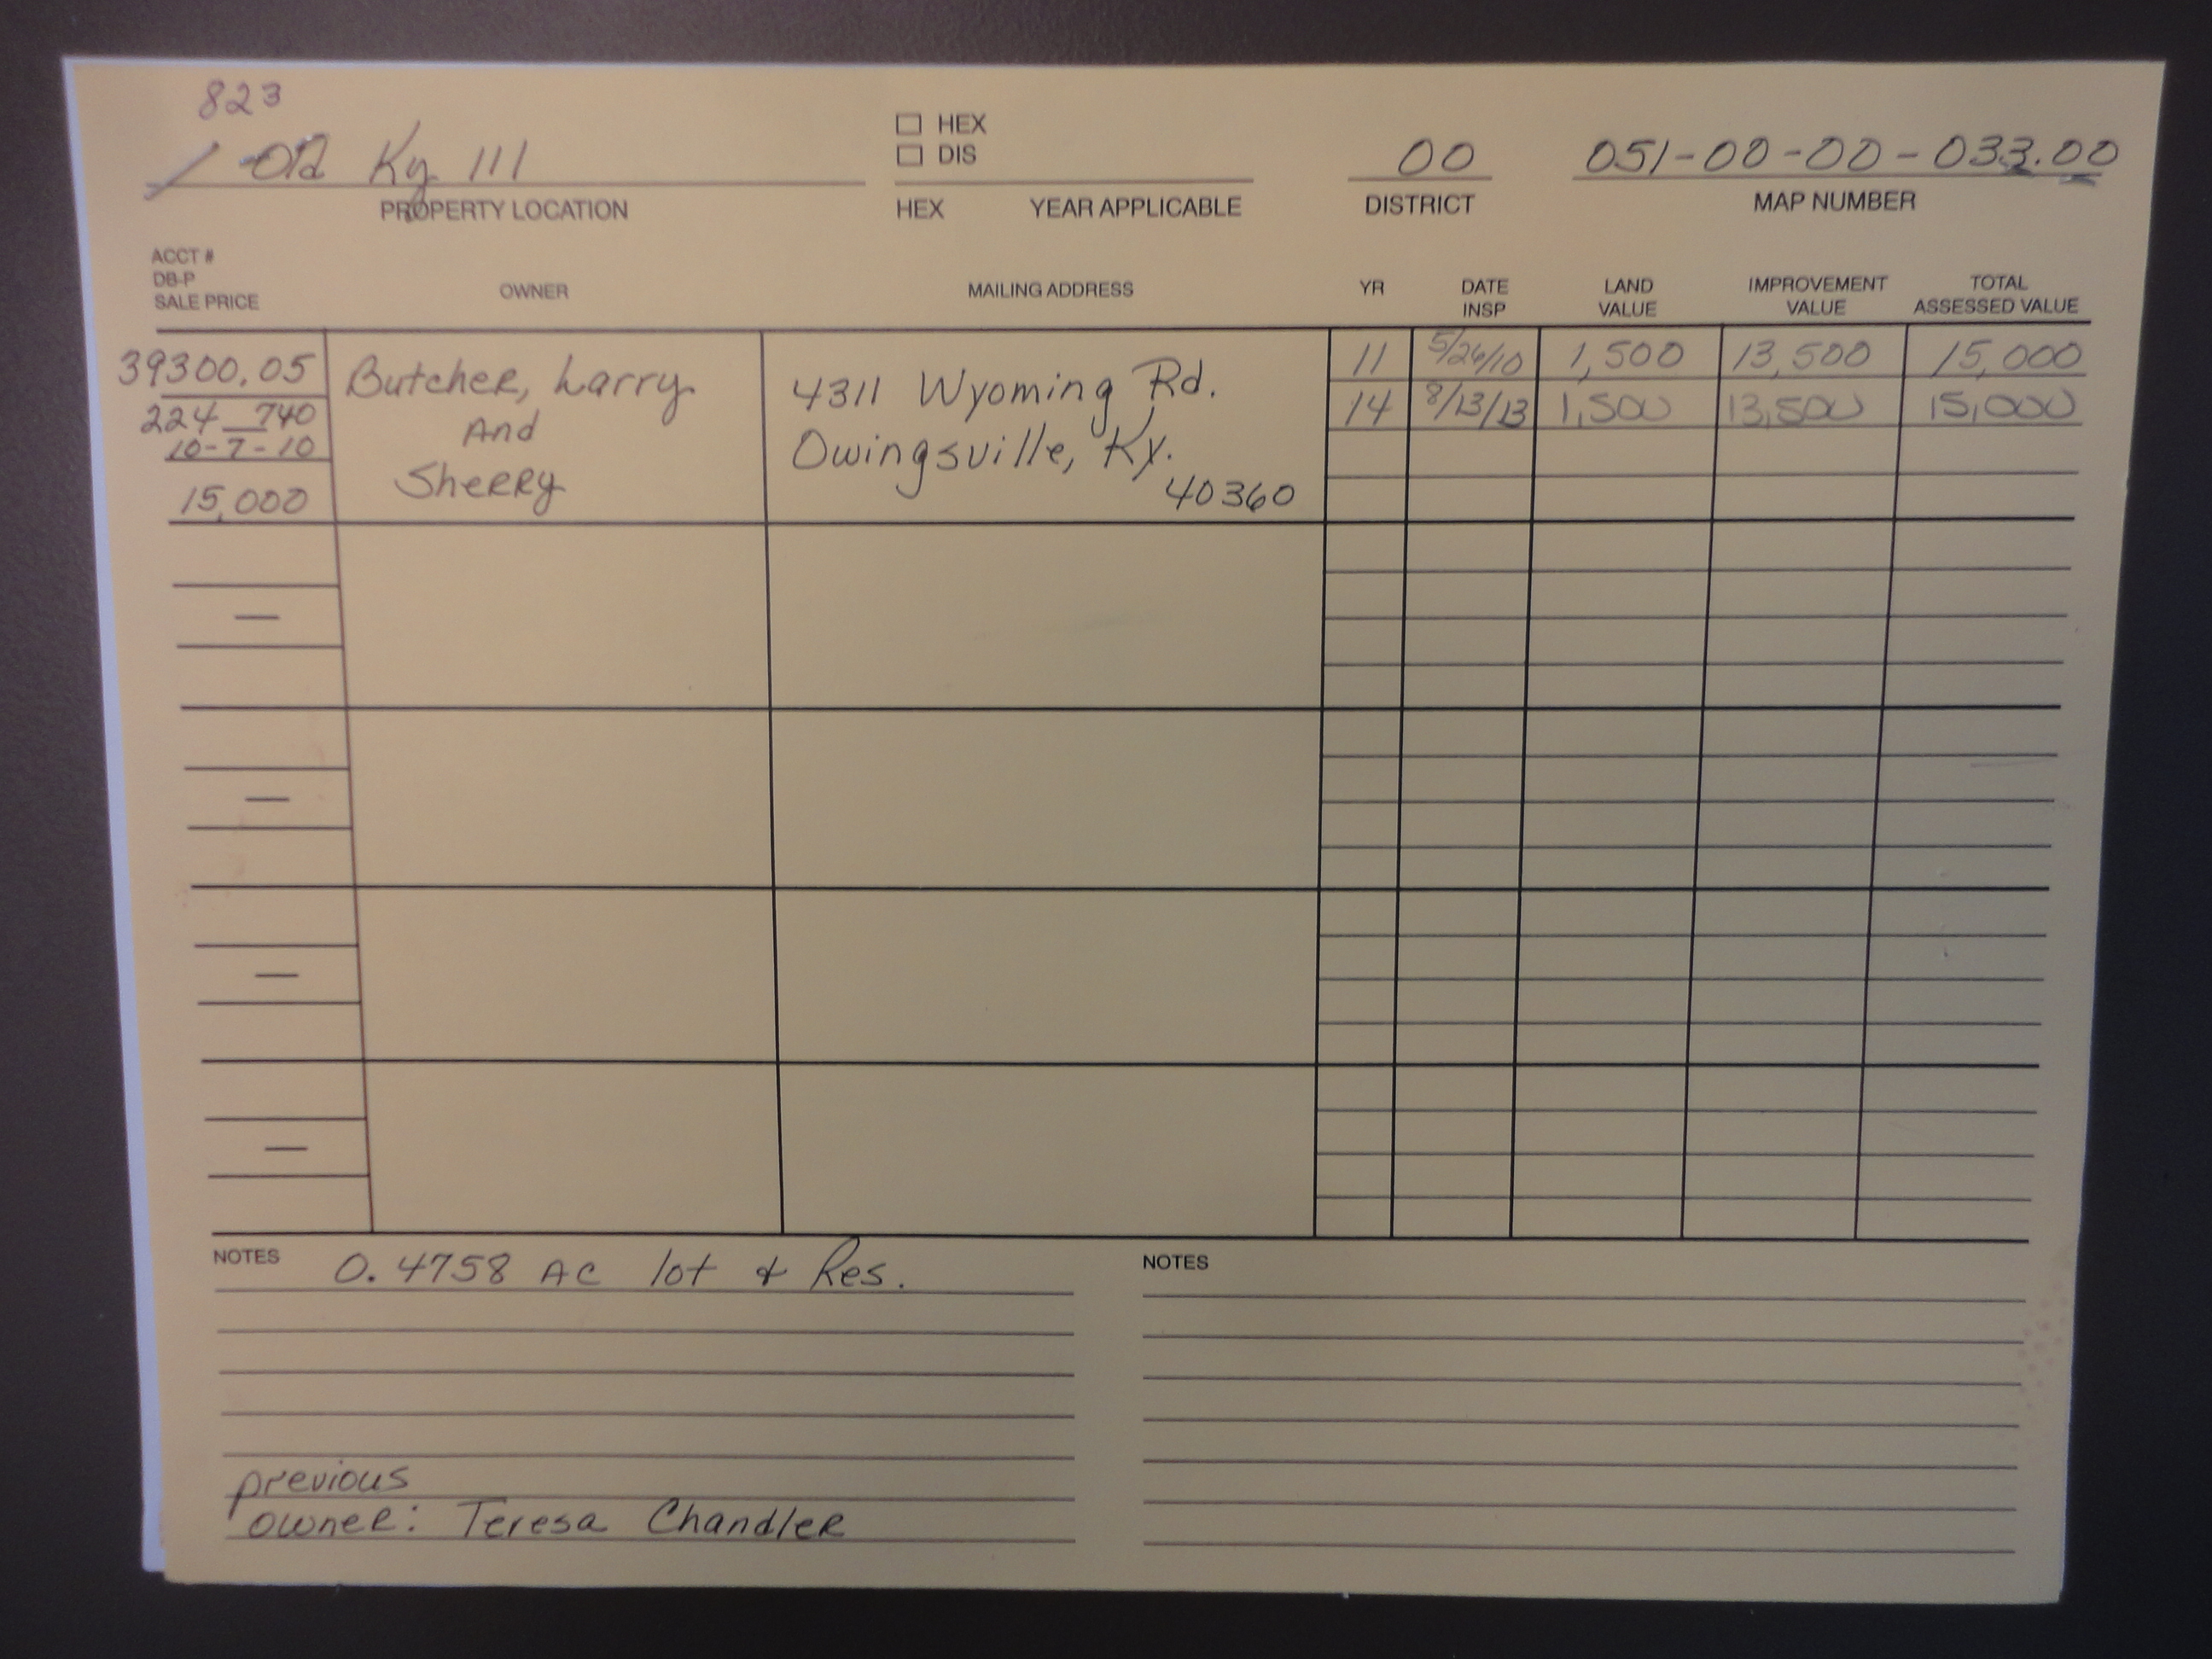 823
Old Ky 111
PROPERTY LOCATION
HEX
DIS
HEX YEAR APPLICABLE
00
DISTRICT
051-00-00-033.00
MAP NUMBER
ACCT #
DB-P
SALE PRICE
OWNER
MAILING ADDRESS
YR
DATE INSP
LAND VALUE
IMPROVEMENT VALUE
TOTAL ASSESSED VALUE
39300.05
224 740
10-7-10
15,000
Butcher, Larry
And
Sherry
4311 Wyoming Rd.
Owingsville, Ky.
40360
11 5/26/10 1,500 13,500 15,000
14 8/13/13 1,500 13,500 15,000
NOTES 0.4758 AC lot & Res.
previous
owner: Teresa Chandler
NOTES